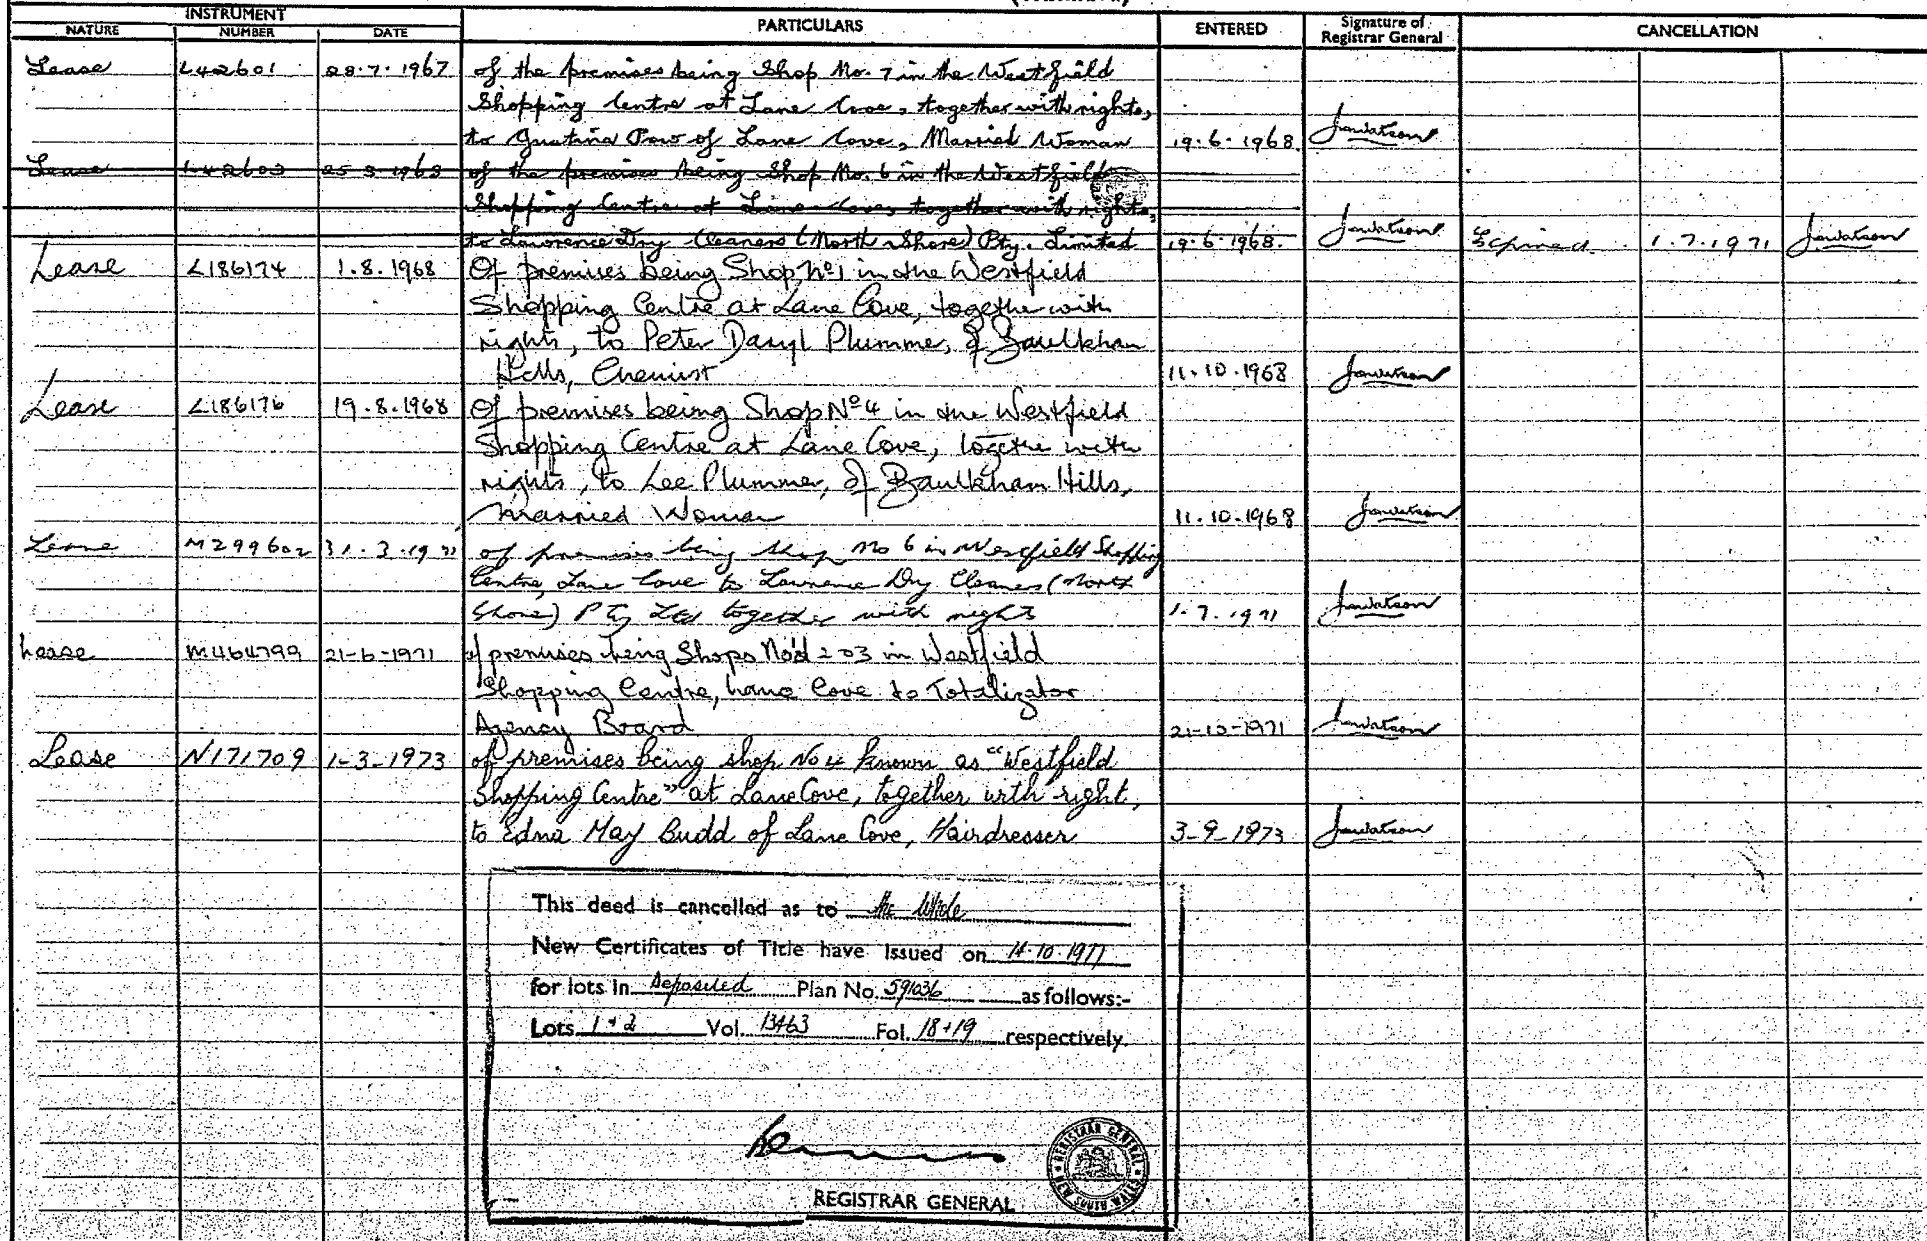 INSTRUMENT
NATURE NUMBER DATE PARTICULARS ENTERED Signature of Registrar General CANCELLATION
Lease L42601 28.7.1967 of the premises being Shop No. 7 in the Westfield
Shopping Centre at Lane Cove, together with rights,
to of Lane Cove, Married Woman 19.6.1968 Jawatson
Lease L42603 of the premises being Shop No. 6 in the Westfield
Shopping Centre at Lane Cove, together with rights,
to Lawrence Dry Cleaners (North Shore) Pty. Limited 19.6.1968. Jawatson Expired 1.7.1971 Jawatson
Lease L186174 1.8.1968 Of premises being Shop No 1 in the Westfield
Shopping Centre at Lane Cove, together with
rights, to Peter Daryl Plummer, of Baulkham
Hills, Chemist 11.10.1968 Jawatson
Lease L186176 19.8.1968 Of premises being Shop No 4 in the Westfield
Shopping Centre at Lane Cove, together with
rights, to Lee Plummer, of Baulkham Hills,
Married Woman 11.10.1968 Jawatson
Lease M299602 31.3.1971 of premises being shop No 6 in Westfield Shopping
Centre, Lane Cove to Lawrence Dry Cleaners (North
Shore) Pty Ltd together with rights 1.7.1971 Jawatson
Lease M464799 21-6-1971 of premises being Shops 2 03 in Westfield
Shopping Centre, Lane Cove to Totalizator
Agency Board 21-10-1971 Jawatson
Lease N171709 1-3-1973 of premises being shop No 4 known as "Westfield
Shopping Centre" at Lane Cove, together with right,
to Edna May Budd of Lane Cove, Hairdresser 3-9-1973 Jawatson
This deed is cancelled as to the whole
New Certificates of Title have Issued on 14.10.1977
for lots in Deposited Plan No. 591036 as follows:-
Lots 1 + 2 Vol. 13463 Fol. 18+19 respectively.
REGISTRAR GENERAL
REGISTRAR GENERAL NEW SOUTH WALES